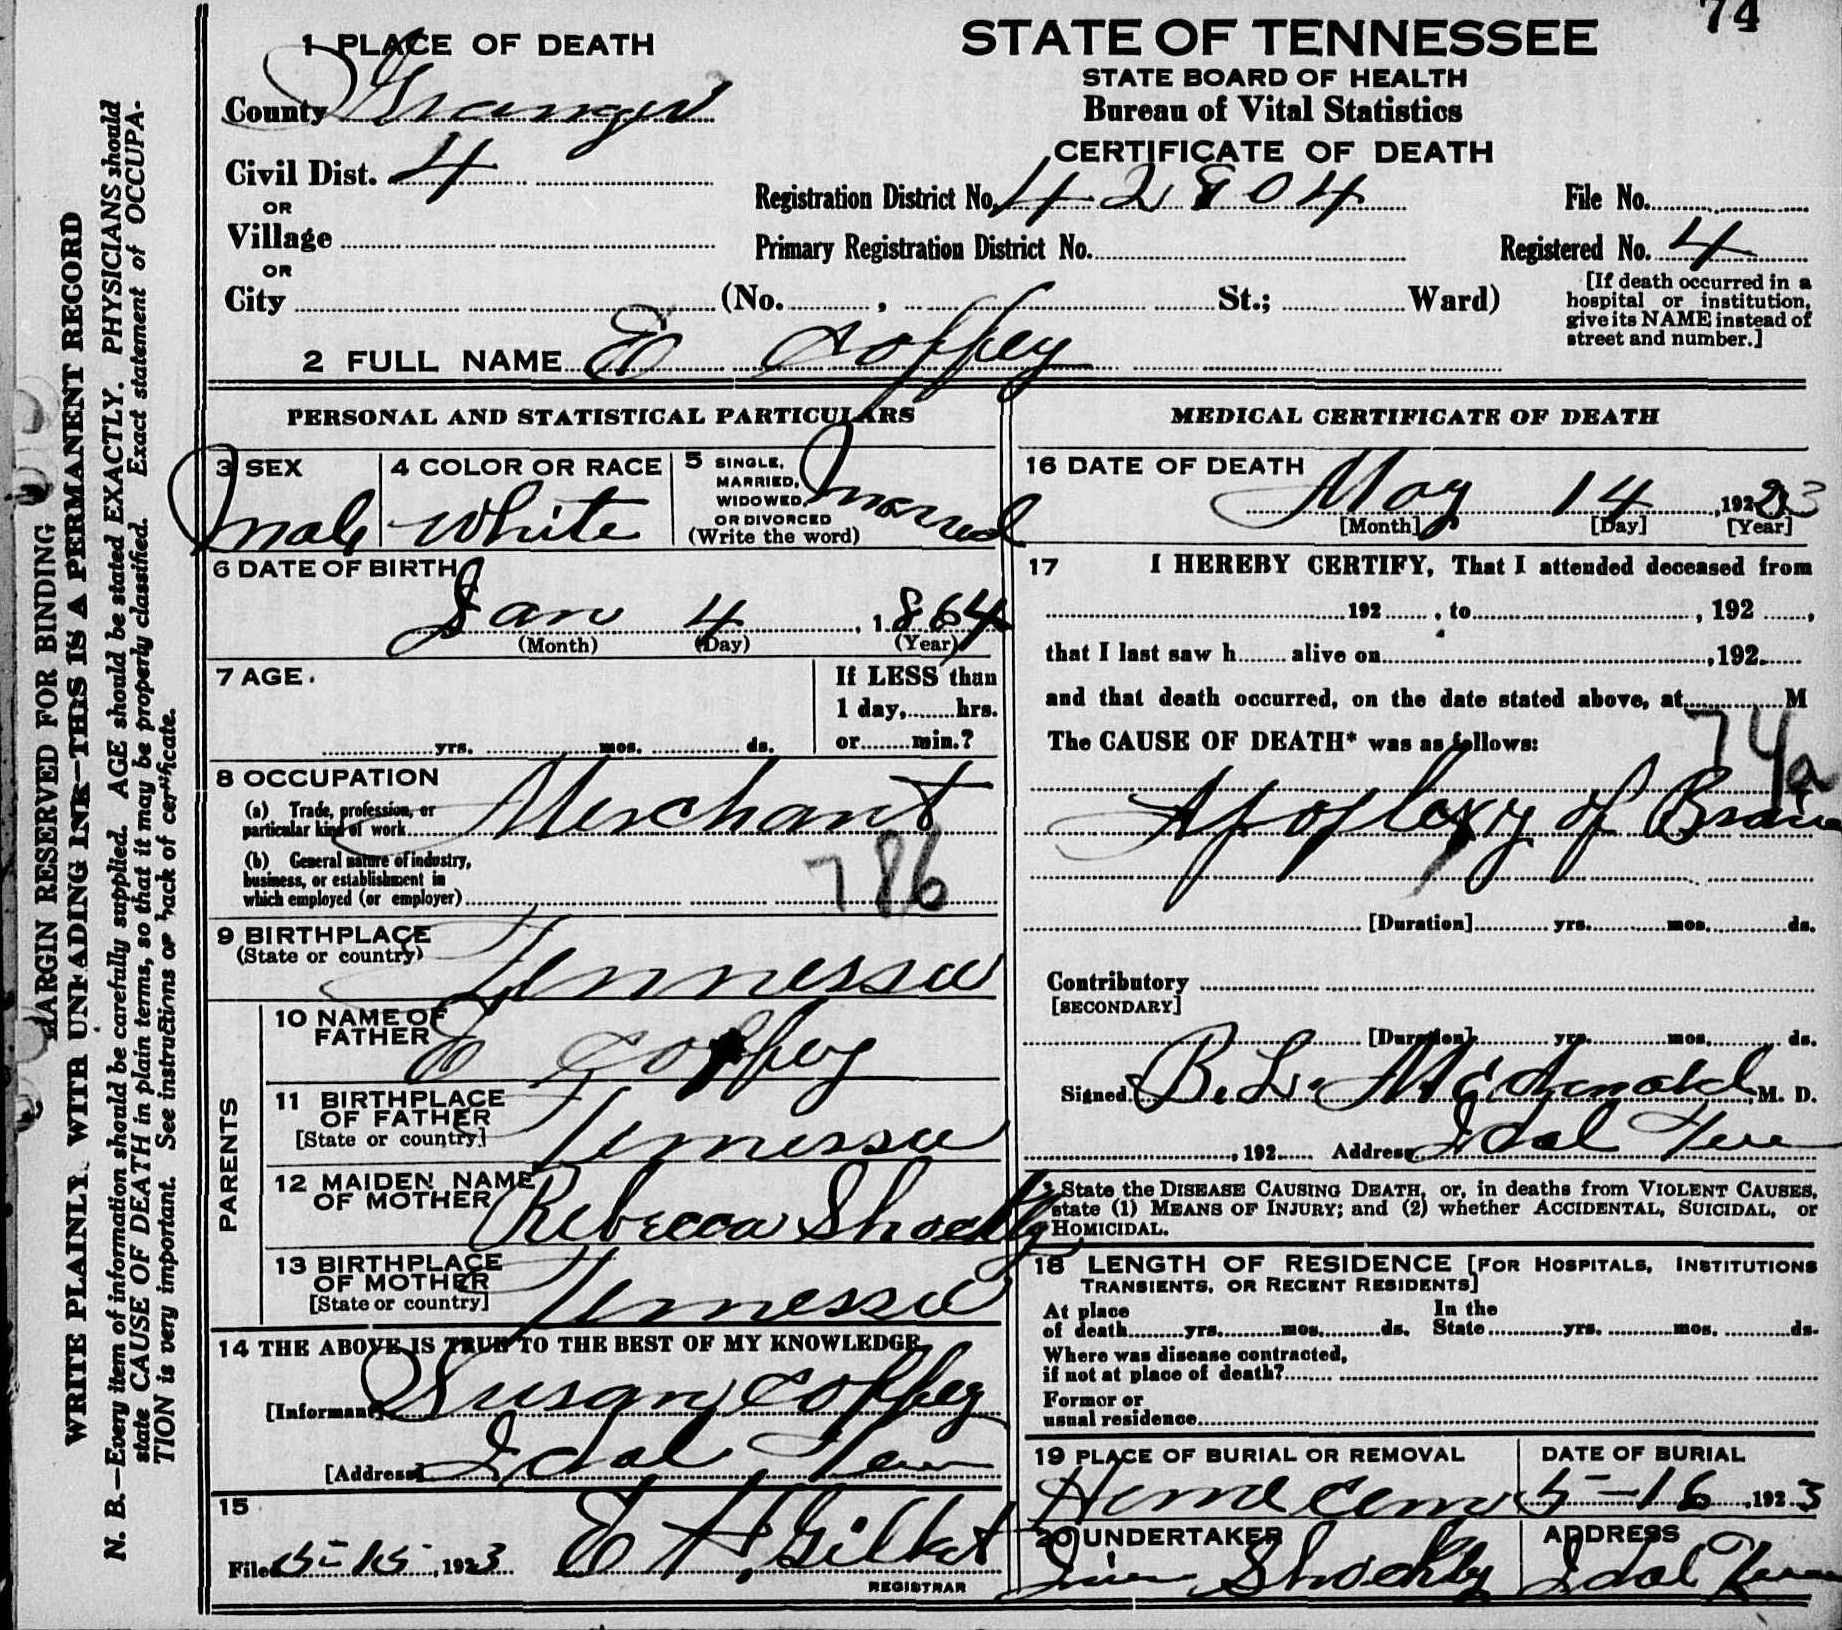 74
1 PLACE OF DEATH
STATE OF TENNESSEE
STATE BOARD OF HEALTH
Bureau of Vital Statistics
CERTIFICATE OF DEATH
County Grainger
Civil Dist. 4
OR
Village
OR
City (No. , St.; Ward)
Registration District No. 42804
File No.
Primary Registration District No.
Registered No. 4
[If death occurred in a
hospital or institution,
give its NAME instead of
street and number.]
2 FULL NAME E Coffey
PERSONAL AND STATISTICAL PARTICULARS
3 SEX
Male
4 COLOR OR RACE
White
5 SINGLE,
MARRIED,
WIDOWED,
OR DIVORCED
(Write the word)
Married
6 DATE OF BIRTH
Jan 4, 1864
(Month) (Day) (Year)
7 AGE.
yrs. mos. ds.
If LESS than
1 day, hrs.
or min.?
8 OCCUPATION
(a) Trade, profession, or
particular kind of work Merchant
(b) General nature of industry,
business, or establishment in
which employed (or employer)
786
9 BIRTHPLACE
(State or country)
Tennessee
PARENTS
10 NAME OF
FATHER
E Coffey
11 BIRTHPLACE
OF FATHER
[State or country]
Tennessee
12 MAIDEN NAME
OF MOTHER
Rebecca Shockly
13 BIRTHPLACE
OF MOTHER
[State or country]
Tennessee
14 THE ABOVE IS TRUE TO THE BEST OF MY KNOWLEDGE
[Informant] Susan Coffey
[Address] Idol Tenn
15
Filed 5-15, 1923
REGISTRAR
MEDICAL CERTIFICATE OF DEATH
16 DATE OF DEATH
May 14, 1923
[Month] [Day] [Year]
17 I HEREBY CERTIFY, That I attended deceased from
192 , to , 192 ,
that I last saw h alive on , 192
and that death occurred, on the date stated above, at M
The CAUSE OF DEATH* was as follows:
74a
Apoplexy of Brain
[Duration] yrs. mos. ds.
Contributory
[SECONDARY]
[Duration] yrs. mos. ds.
Signed B. L. McDonald, M. D.
, 192 Address Idol Tenn
* State the DISEASE CAUSING DEATH, or, in deaths from VIOLENT CAUSES,
state (1) MEANS OF INJURY; and (2) whether ACCIDENTAL, SUICIDAL, or
HOMICIDAL.
18 LENGTH OF RESIDENCE [FOR HOSPITALS, INSTITUTIONS
TRANSIENTS, OR RECENT RESIDENTS]
At place In the
of death yrs. mos. ds. State yrs. mos. ds.
Where was disease contracted,
if not at place of death?
Former or
usual residence
19 PLACE OF BURIAL OR REMOVAL
Home Cem
DATE OF BURIAL
5-16, 1923
20 UNDERTAKER
Shockly
ADDRESS
Idol Tenn
MARGIN RESERVED FOR BINDING
WRITE PLAINLY WITH UNFADING INK—THIS IS A PERMANENT RECORD
N. B.—Every item of information should be carefully supplied. AGE should be stated EXACTLY. PHYSICIANS should
state CAUSE OF DEATH in plain terms, so that it may be properly classified. Exact statement of OCCUPA-
TION is very important. See instructions on back of certificate.